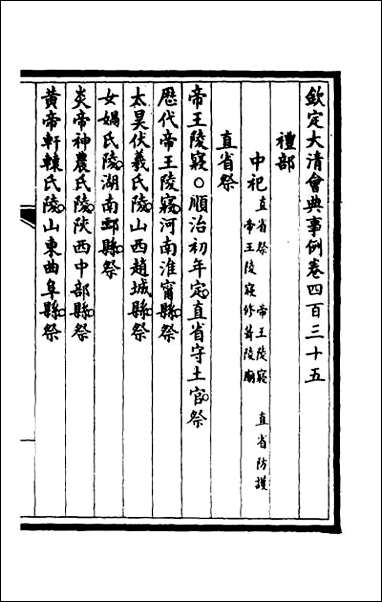 欽定大清會典事例卷四百三十五
禮部
中祀 直省祭 帝王陵寢 直省防護
帝王陵寢修葺陵廟
直省祭
帝王陵寢○順治初年定。直省守土官。祭
歷代帝王陵寢。河南淮甯縣。祭
太昊伏羲氏陵。山西趙城縣。祭
女媧氏陵。湖南酃縣。祭
炎帝神農氏陵。陝西中部縣。祭
黃帝軒轅氏陵。山東曲阜縣。祭